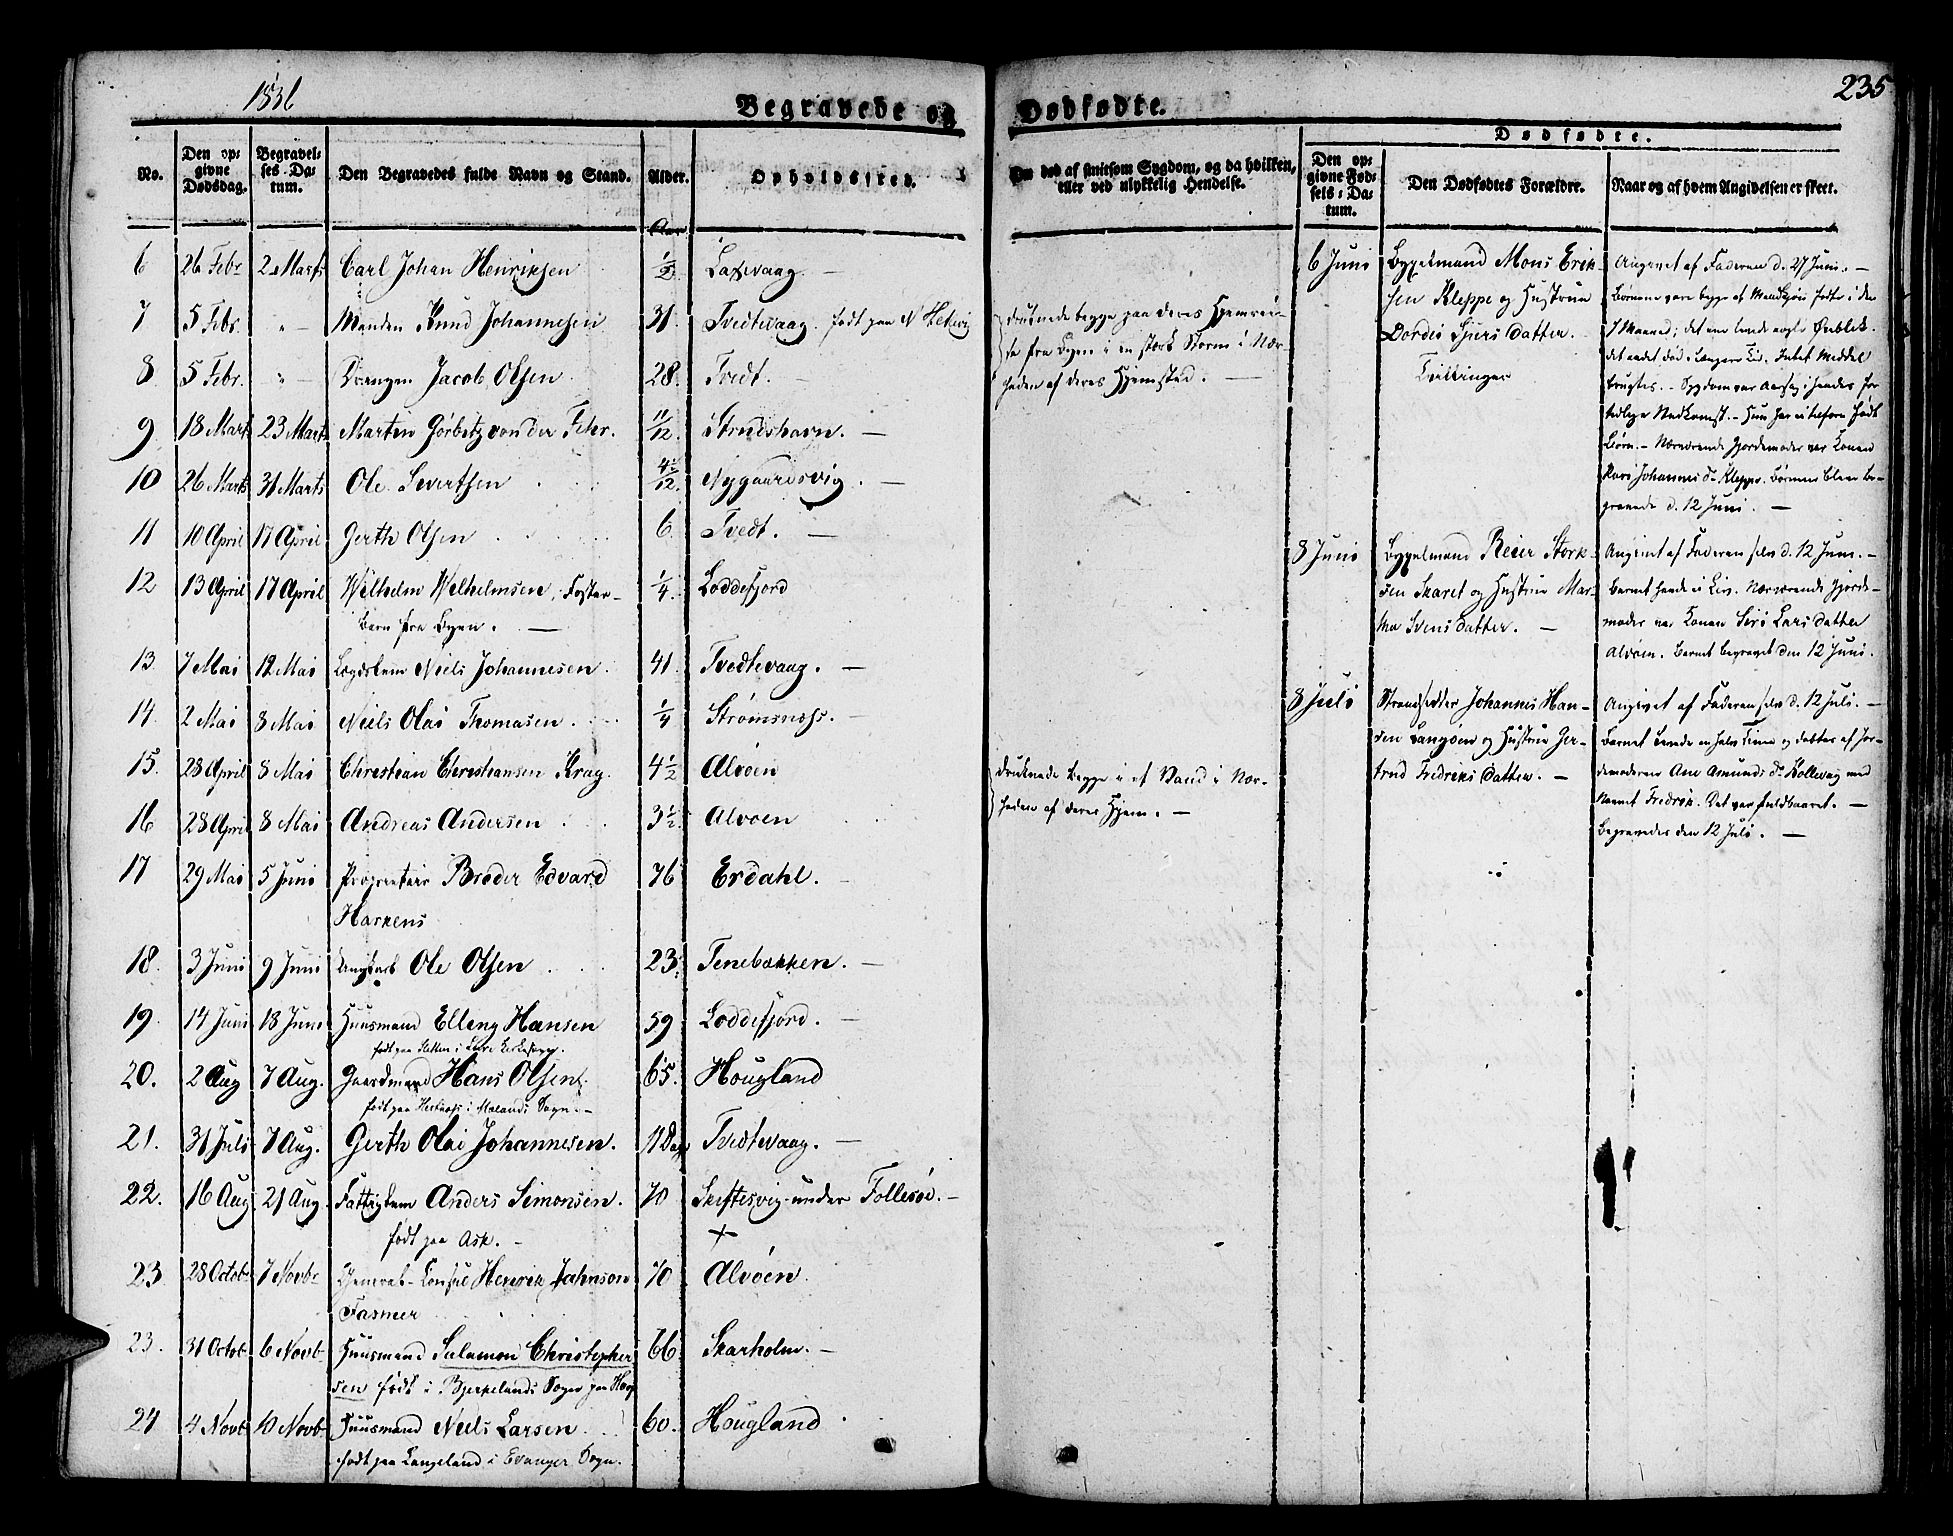 1836
235
Begravede og Dødfødte.
Dødfødte.
No.
Den opgivne Dødsdag.
Begravelses-Datum.
Den Begravedes fulde Navn og Stand.
Alder.
Opholdssted.
Om død af smitsom Sygdom, og da hvilken, eller ved ulykkelig Hendelse.
Den opgivne Fødsels-Datum.
Den Dødfødtes Forældre.
Naar og af hvem Angivelsen er skeet.
Aar
6 26 Febr 2 Marts Carl Johan Henriksen ½ Laxevaag.
7 5 Febr. " Manden Knud Johannesen 31. Tvedtevaag. født paa
8 5 Febr. " Drengen Jacob Olsen 28. Tvedt.
druknede begge paa deres Hjemrei-
se fra Byen i en stærk Storm i Nær-
heden af deres Hjemsted.
9 18 Marts 23 Marts Marten Görbitz von der Fehr. 11/12. Strudshavn.
10 26 Marts 31 Marts Ole Sivertsen 4½/12. Nygaardsvig.
11 10 April 17 April Gerth Olsen 6 Tvedt.
12 13 April 17 April Wilhelm Wilhelmsen, Foster-
Barn fra Byen. ¼. Loddefjord
13. 7 Mai 12 Mai Lægdslem Niels Johannesen 41. Tvedtevaag.
14. 2 Mai 8 Mai Niels Olai Thomasen. ¼ Strømsnæss.
15. 28 April 8 Mai Christian Christiansen Krag. 4½ Alvøen
16 28 April 8 Mai Andreas Andersen 3½. Alvøen
druknede begge i et Vand i Nær-
heden af deres Hjem.
17 29 Mai 5 Juni Proprietair Brøder Edvard
Harkens 76 Erdahl.
18. 3 Juni 9 Juni Ungkarl Ole Olsen 23. Tenebækken.
19. 14 Juni 18 Juni Huusmand Elling Hansen 59 Loddefjord.
født paa
20. 2 Aug 7 Aug. Gaardmand Hans Olsen. 65. Hougland
født paa
21. 31 Juli 7 Aug. Gerth Olai Johannesen. 11 Dage Tvedtevaag.
22. 16 Aug 21 Aug. Fattiglem Anders Simonsen. 70 Skiftesvig under Follesøe.
født paa Ask.
23 28 Octob 7 Novbr General-Consul Henrik Jahnson
Fasmer 70 Alvøen.
23. 31 Octob. 6 Novb. Huusmand Salamon Christopher
sen født i 66. Skarholm.
24 4 Novb 10 Novb. Huusmand Niels Larsen 60. Hougland
født paa Langeland i Evanger Sogn.
6 Juni
Bygselmand Mons Erik-
sen Kleppe og Hustrue
Dordei Sjurs datter.
Tvillinger
Angivet af Faderen d. 27 Juni.
Børnene vare begge af Mandkjøn fødte i den
7 Maaned; det ene levede nogle Øieblik.
brugtes.
Børn. Nærværende Jordemoder var Konen
Kari Johannes dr Kleppe. Børnene bleve be-
gravede d. 12 Juni.
8 Juni
Bygselmand Reier Stork-
sen Skaret og Hustrue Mar-
tha Svensdatter.
Angivet af Faderen selv d. 12 Juni.
Barnet havde ei Liv. Nærværende Jorde-
moder var Konen Siri Lars datter
Alvøen. Barnet begravet den 12 Juni.
8 Juli
Strandsidder Johannes Han-
sen Langøen og Hustrue Ger-
trud Fredriks datter.
Angivet af Faderen selv d. 12 Juli.
Barnet levede en halv Time og døbtes af Jor-
demoderen Ane Asmunds dr Kollevaag med
Navnet Fredrik. Det var fuldbaaret.
Begravedes den 12 Juli.